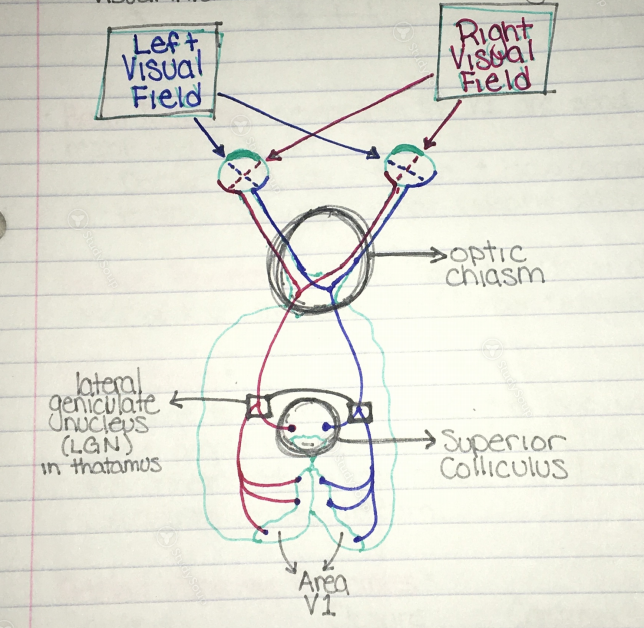 Left
Visual
Field
Right
Visual
Field
optic
chiasm
lateral
geniculate
nucleus
(LGN)
in thatamus
Superior
Colliculus
Area
V1